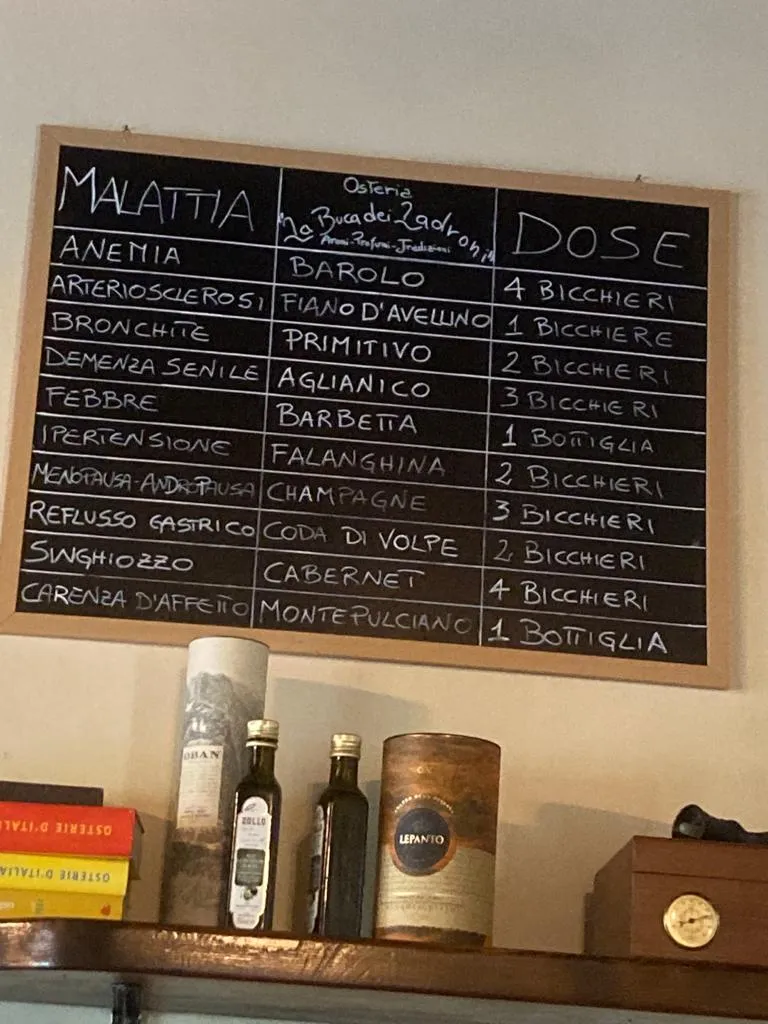 MALATTIA Osteria "La Buca dei Ladroni" DOSE
Aromi-Profumi-Tradizioni
ANEMIA BAROLO 4 BICCHIERI
ARTERIOSCLEROSI FIANO D'AVELLINO 1 BICCHIERE
BRONCHITE PRIMITIVO 2 BICCHIERI
DEMENZA SENILE AGLIANICO 3 BICCHIERI
FEBBRE BARBETTA 1 BOTTIGLIA
IPERTENSIONE FALANGHINA 2 BICCHIERI
MENOPAUSA-ANDROPAUSA CHAMPAGNE 3 BICCHIERI
REFLUSSO GASTRICO CODA DI VOLPE 2 BICCHIERI
SINGHIOZZO CABERNET 4 BICCHIERI
CARENZA D'AFFETTO MONTEPULCIANO 1 BOTTIGLIA
OBAN
ZOLLO
LEPANTO
OSTERIE D'ITALI
OSTERIE D'ITALIA